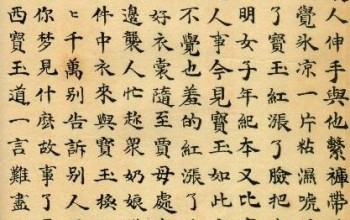 人伸手與他繫褲帶
覺氷凉一片粘濕唬
了寶玉紅漲了臉把
明女子年紀本又比
人事今見寶玉如此
不覺也羞的紅漲了
好衣裳隨至賈母處
邊襲人忙趁眾奶娘
件中衣來與寶玉換
千萬别告訴别人
你夢見什庅故事了
西寶玉道一言難盡